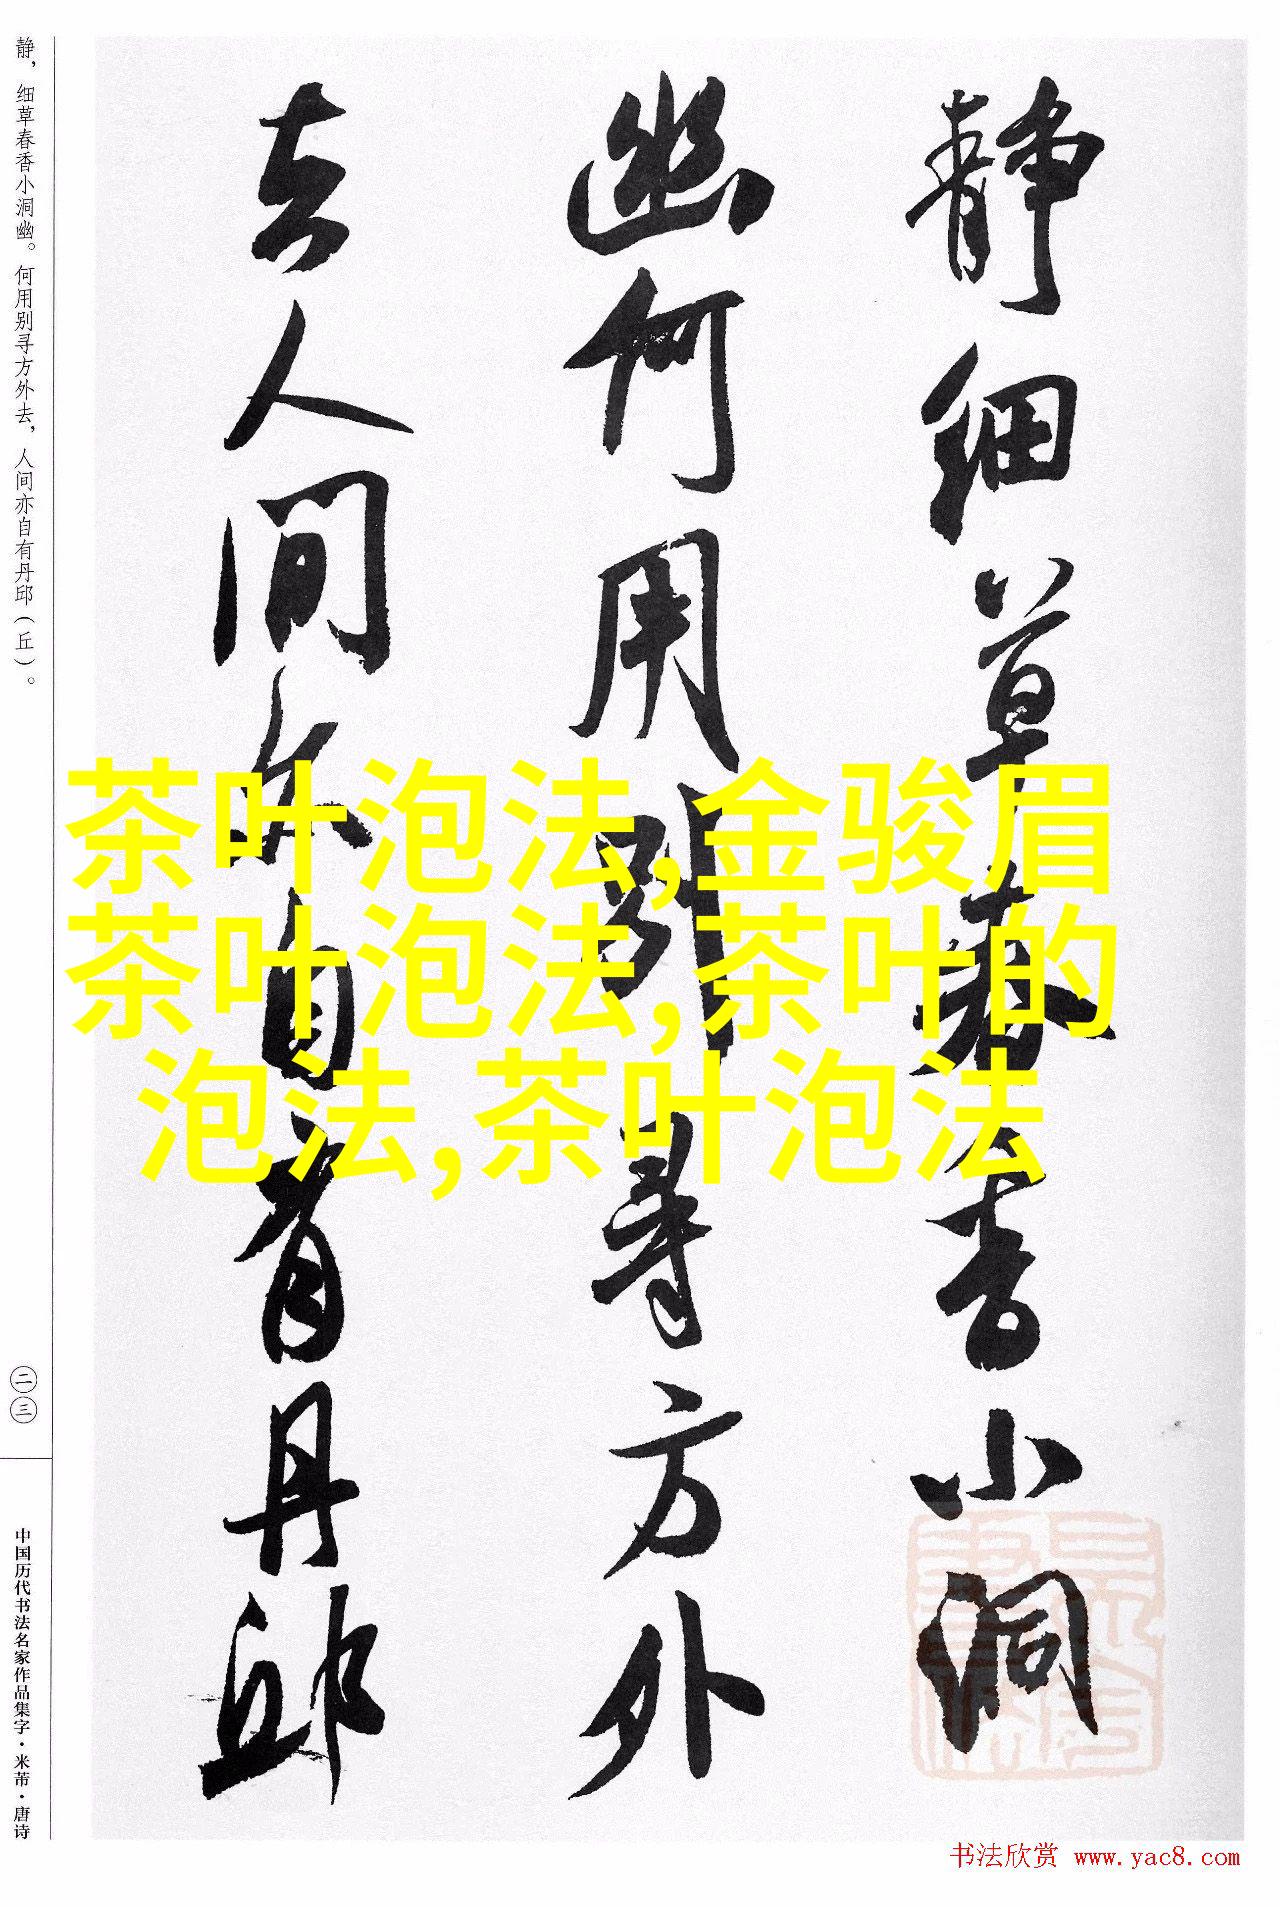 静，细草春香小洞幽。何用别寻方外去，人间亦自有丹邱（丘）。
二三
中国历代书法名家作品集字·米芾·唐诗
静细草春香小洞
幽何用别寻方外
去人间亦自有丹邱
茶叶泡法,金骏眉
茶叶泡法,茶叶的
泡法,茶叶泡法
书法欣赏 www.yac8.com